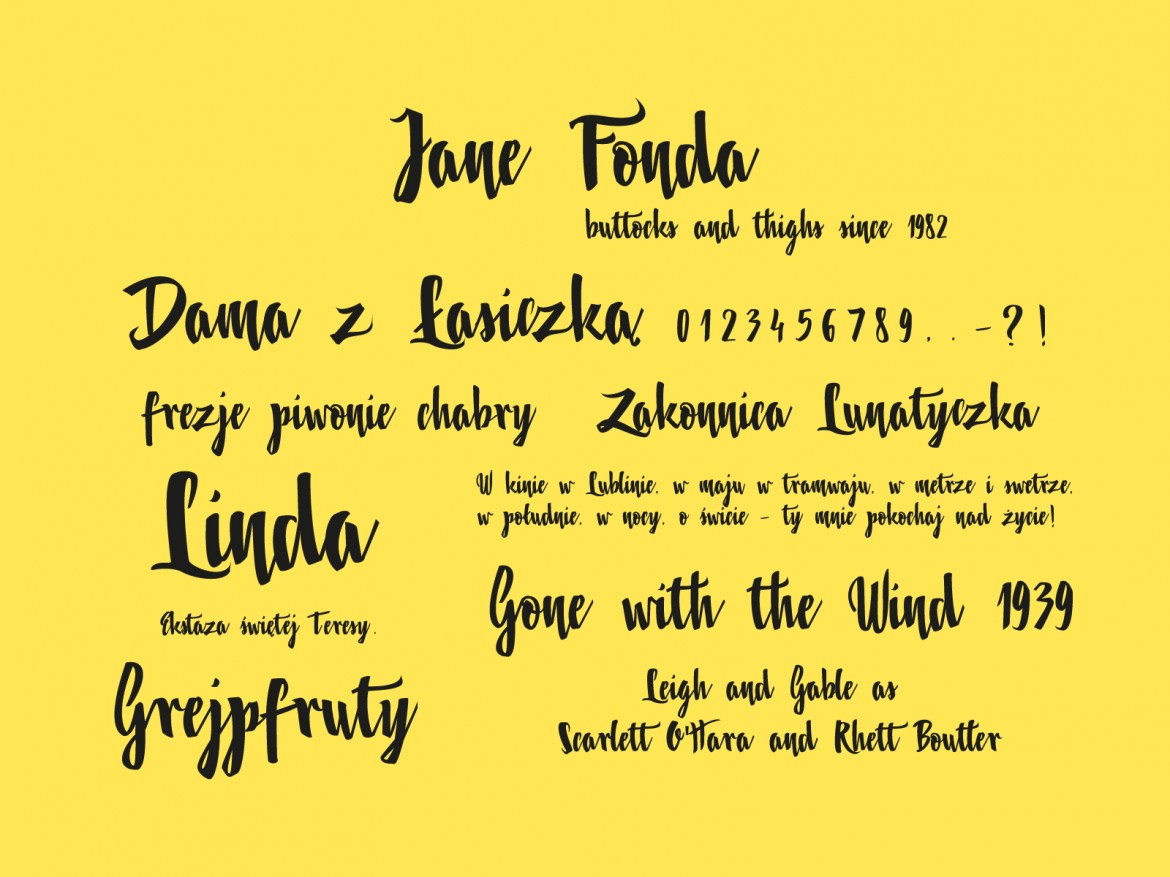 Jane Fonda
buttocks and thighs since 1982
Dama z Łasiczką 0123456789,.-?!
frezje piwonie chabry
Zakonnica Lunatyczka
Linda
W kinie w Lublinie, w maju w tramwaju, w metrze i swetrze,
w południe, w nocy, o świcie - ty mnie pokochaj nad życie!
Ekstaza świętej Teresy.
Gone with the Wind 1939
Grejpfruty
Leigh and Gable as
Scarlett O'Hara and Rhett Boutler